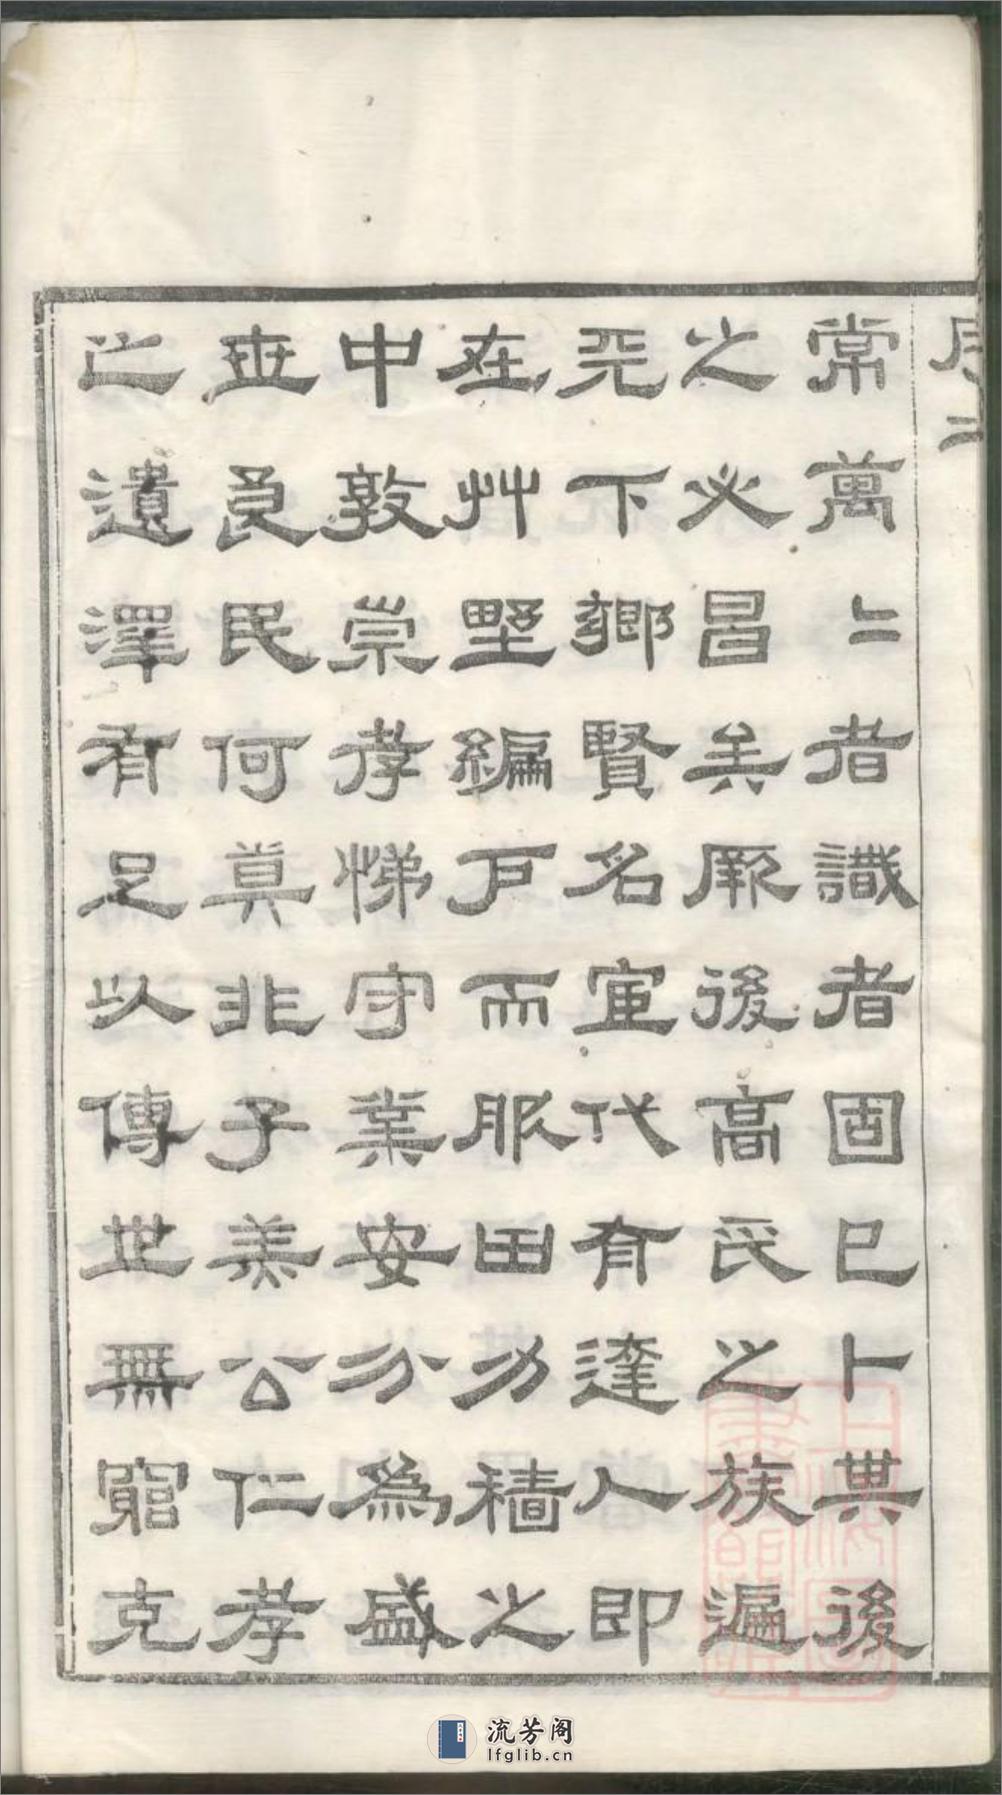 序二
常萬二者識者固已卜其後
之必昌矣厥後高氏之族遍
天下鄉賢名宦代有達人即
在艸野編戶而服田力穡之
中敦崇孝悌守業安分為盛
世良民何莫非子羔公仁孝
之遺澤有足以傳世無窮克
上海圖
書館藏
流芳阁
lfglib.cn